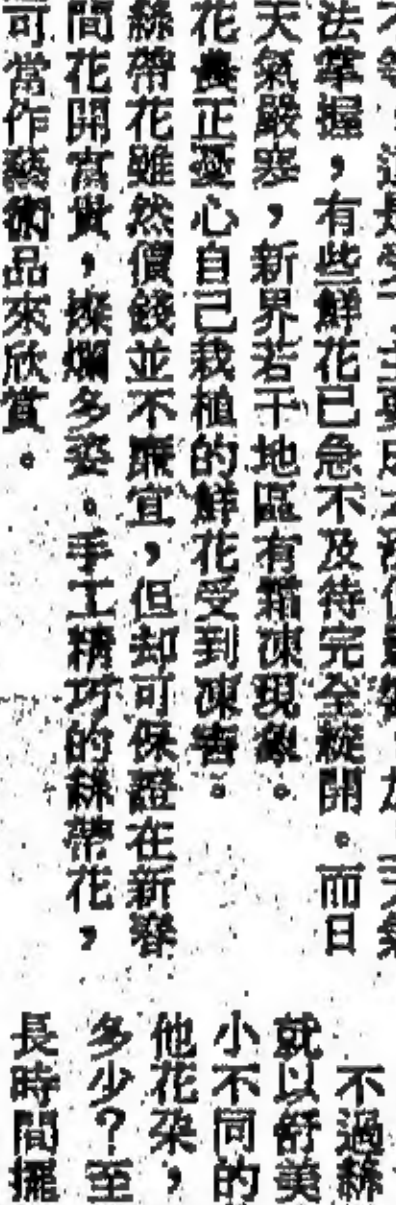 法掌握，有些鮮花已急不及待完全綻開。而日
天氣嚴寒，新界若干地區有霜凍現象。
花農正憂心自己栽植的鮮花受到凍害。
絲帶花雖然價錢並不廉宜，但却可保證在新春
間花開富貴，燦爛多姿。手工精巧的絲帶花，
可當作藝術品來欣賞。
不過絲
就以舒美
小不同的
他花朶，
多少？至
長時間擺